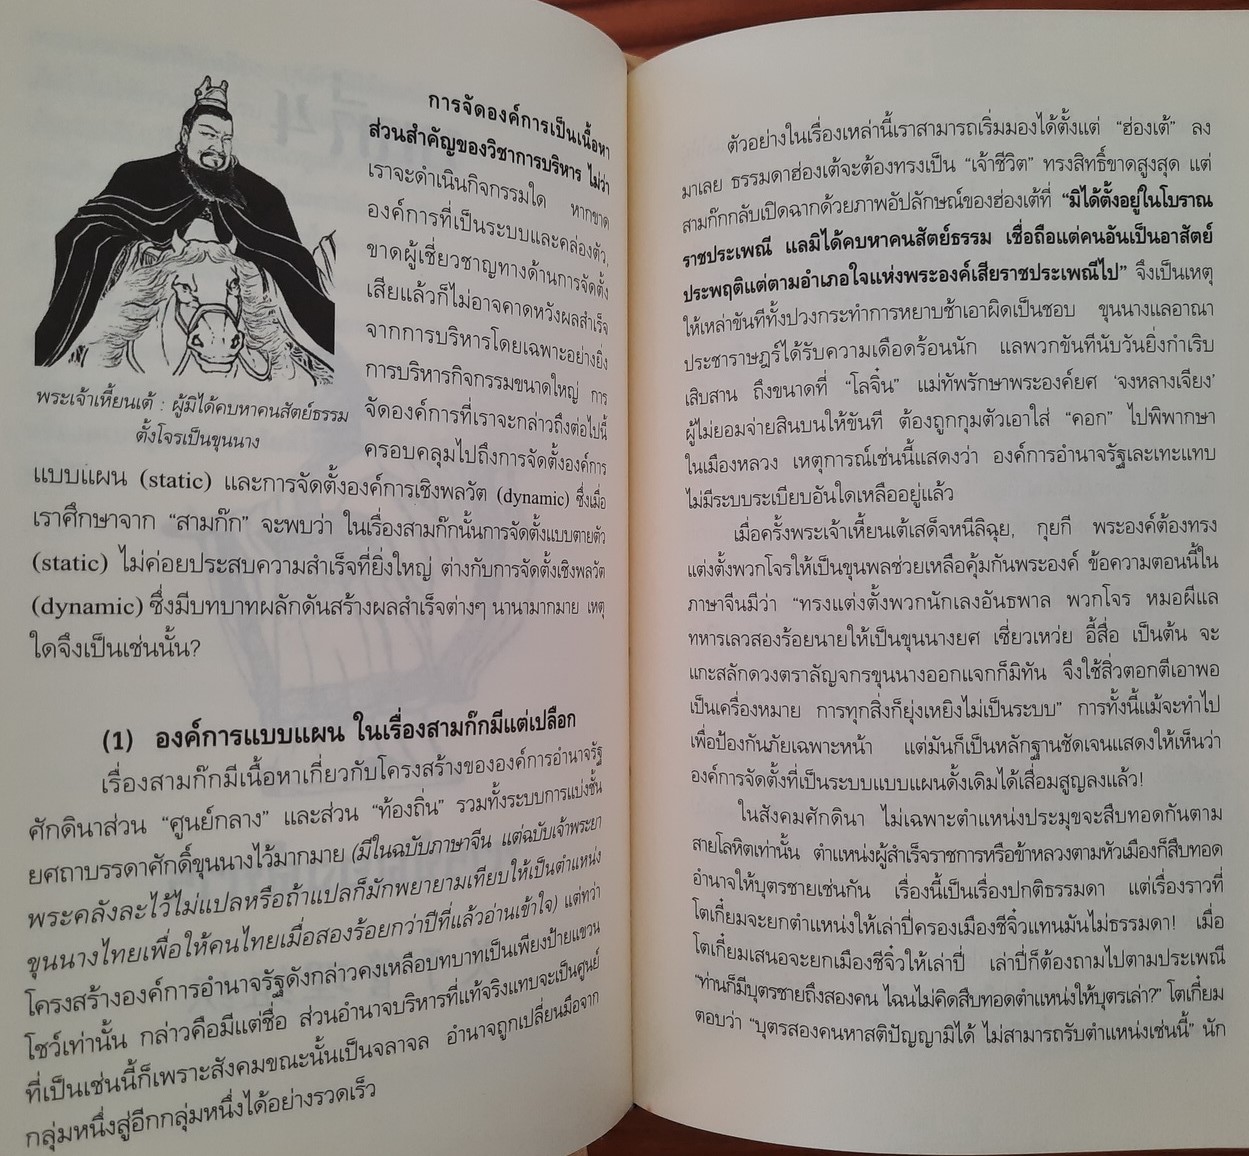 การจัดองค์การเป็นเนื้อหา
ส่วนสำคัญของวิชาการบริหาร ไม่ว่า
เราจะดำเนินกิจกรรมใด หากขาด
องค์การที่เป็นระบบและคล่องตัว,
ขาดผู้เชี่ยวชาญทางด้านการจัดตั้ง
เสียแล้วก็ไม่อาจคาดหวังผลสำเร็จ
จากการบริหารโดยเฉพาะอย่างยิ่ง
การบริหารกิจกรรมขนาดใหญ่ การ
จัดองค์การที่เราจะกล่าวถึงต่อไปนี้
ครอบคลุมไปถึงการจัดตั้งองค์การ
พระเจ้าเหี้ยนเต้ : ผู้มิได้คบหาคนสัตย์ธรรม
ตั้งโจรเป็นขุนนาง
แบบแผน (static) และการจัดตั้งองค์การเชิงพลวัต (dynamic) ซึ่งเมื่อ
เราศึกษาจาก “สามก๊ก” จะพบว่า ในเรื่องสามก๊กนั้นการจัดตั้งแบบตายตัว
(static) ไม่ค่อยประสบความสำเร็จที่ยิ่งใหญ่ ต่างกับการจัดตั้งเชิงพลวัต
(dynamic) ซึ่งมีบทบาทผลักดันสร้างผลสำเร็จต่างๆ นานามากมาย เหตุ
ใดจึงเป็นเช่นนั้น?
(1) องค์การแบบแผน ในเรื่องสามก๊กมีแต่เปลือก
เรื่องสามก๊กมีเนื้อหาเกี่ยวกับโครงสร้างขององค์การอำนาจรัฐ
ศักดินาส่วน “ศูนย์กลาง” และส่วน “ท้องถิ่น” รวมทั้งระบบการแบ่งชั้น
ยศถาบรรดาศักดิ์ขุนนางไว้มากมาย (มีในฉบับภาษาจีน แต่ฉบับเจ้าพระยา
พระคลังละไว้ไม่แปลหรือถ้าแปลก็มักพยายามเทียบให้เป็นตำแหน่ง
ขุนนางไทยเพื่อให้คนไทยเมื่อสองร้อยกว่าปีที่แล้วอ่านเข้าใจ) แต่ทว่า
โครงสร้างองค์การอำนาจรัฐดังกล่าวคงเหลือบทบาทเป็นเพียงป้ายแขวน
โชว์เท่านั้น กล่าวคือมีแต่ชื่อ ส่วนอำนาจบริหารที่แท้จริงแทบจะเป็นศูนย์
ที่เป็นเช่นนี้ก็เพราะสังคมขณะนั้นเป็นจลาจล อำนาจถูกเปลี่ยนมือจาก
กลุ่มหนึ่งสู่อีกกลุ่มหนึ่งได้อย่างรวดเร็ว
ตัวอย่างในเรื่องเหล่านี้เราสามารถเริ่มมองได้ตั้งแต่ “ฮ่องเต้” ลง
มาเลย ธรรมดาฮ่องเต้จะต้องทรงเป็น “เจ้าชีวิต” ทรงสิทธิ์ขาดสูงสุด แต่
สามก๊กกลับเปิดฉากด้วยภาพอัปลักษณ์ของฮ่องเต้ที่ “มิได้ตั้งอยู่ในโบราณ
ราชประเพณี แลมิได้คบหาคนสัตย์ธรรม เชื่อถือแต่คนอันเป็นอาสัตย์
ประพฤติแต่ตามอำเภอใจแห่งพระองค์เสียราชประเพณีไป” จึงเป็นเหตุ
ให้เหล่าขันทีทั้งปวงกระทำการหยาบช้าเอาผิดเป็นชอบ ขุนนางแลอาณา
ประชาราษฎร์ได้รับความเดือดร้อนนัก แลพวกขันทีนับวันยิ่งกำเริบ
เสิบสาน ถึงขนาดที่ “โลจิ๋น” แม่ทัพรักษาพระองค์ยศ ‘จงหลางเจียง’
ผู้ไม่ยอมจ่ายสินบนให้ขันที ต้องถูกกุมตัวเอาใส่ “คอก” ไปพิพากษา
ในเมืองหลวง เหตุการณ์เช่นนี้แสดงว่า องค์การอำนาจรัฐเละเทะแทบ
ไม่มีระบบระเบียบอันใดเหลืออยู่แล้ว
เมื่อครั้งพระเจ้าเหี้ยนเต้เสด็จหนีลิฉุย, กุยกี พระองค์ต้องทรง
แต่งตั้งพวกโจรให้เป็นขุนพลช่วยเหลือคุ้มกันพระองค์ ข้อความตอนนี้ใน
ภาษาจีนมีว่า “ทรงแต่งตั้งพวกนักเลงอันธพาล พวกโจร หมอผีแล
ทหารเลวสองร้อยนายให้เป็นขุนนางยศ เซี่ยวเหว่ย อี้สื่อ เป็นต้น จะ
แกะสลักดวงตราลัญจกรขุนนางออกแจกก็มิทัน จึงใช้สิ่วตอกตีเอาพอ
เป็นเครื่องหมาย การทุกสิ่งก็ยุ่งเหยิงไม่เป็นระบบ” การทั้งนี้แม้จะทำไป
เพื่อป้องกันภัยเฉพาะหน้า แต่มันก็เป็นหลักฐานชัดเจนแสดงให้เห็นว่า
องค์การจัดตั้งที่เป็นระบบแบบแผนดั้งเดิมได้เสื่อมสูญลงแล้ว!
ในสังคมศักดินา ไม่เฉพาะตำแหน่งประมุขจะสืบทอดกันตาม
สายโลหิตเท่านั้น ตำแหน่งผู้สำเร็จราชการหรือข้าหลวงตามหัวเมืองก็สืบทอด
อำนาจให้บุตรชายเช่นกัน เรื่องนี้เป็นเรื่องปกติธรรมดา แต่เรื่องราวที่
โตเกี๋ยมจะยกตำแหน่งให้เล่าปี่ครองเมืองชีจิ๋วแทนมันไม่ธรรมดา! เมื่อ
โตเกี๋ยมเสนอจะยกเมืองชีจิ๋วให้เล่าปี่ เล่าปี่ก็ต้องถามไปตามประเพณี
“ท่านก็มีบุตรชายถึงสองคน ไฉนไม่คิดสืบทอดตำแหน่งให้บุตรเล่า?” โตเกี๋ยม
ตอบว่า “บุตรสองคนหาสติปัญญามิได้ ไม่สามารถรับตำแหน่งเช่นนี้” นัก